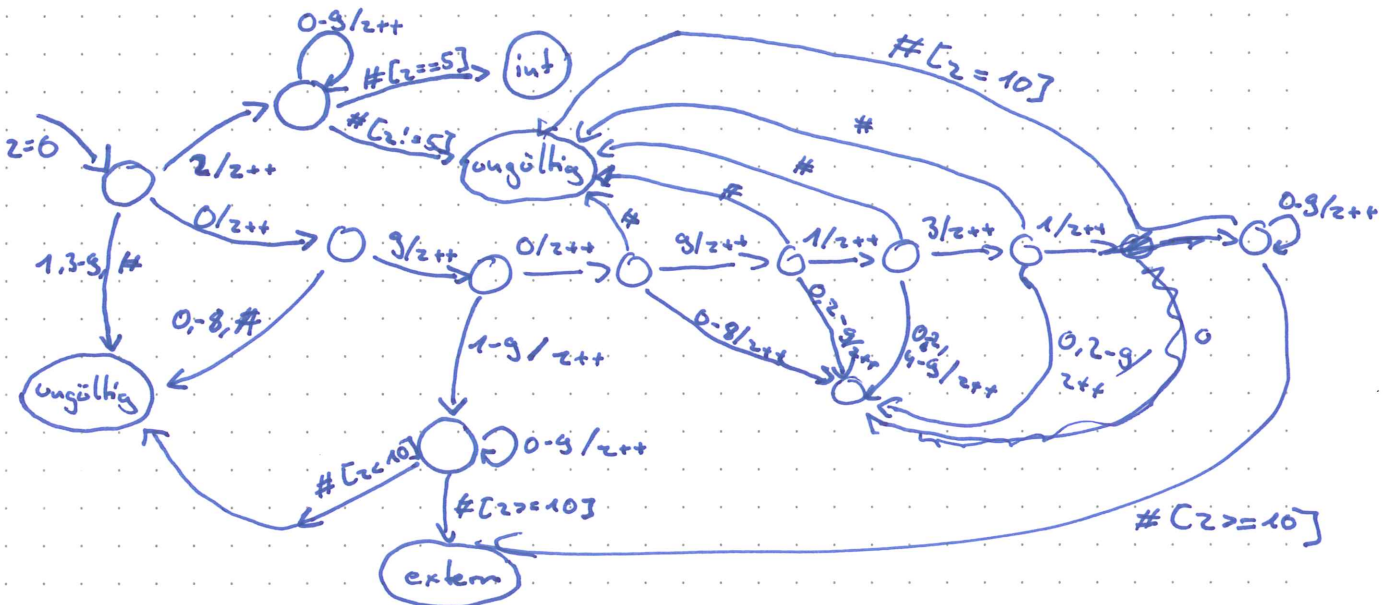 0-9/z++
#[z==5]
int
#[z = 10]
z=0
#[z!=5]
ungültig
2/z++
#
#
#
#
0/z++
9/z++
0/z++
9/z++
1/z++
3/z++
1/z++
0-9/z++
1,3-9,#
0,-8,#
1-9/z++
0-8/z++
0,2-9/z++
0,2,
4-9/z++
0,2-9/
z++
0
ungültig
#[z<10]
0-9/z++
#[z>=10]
#[z>=10]
extern